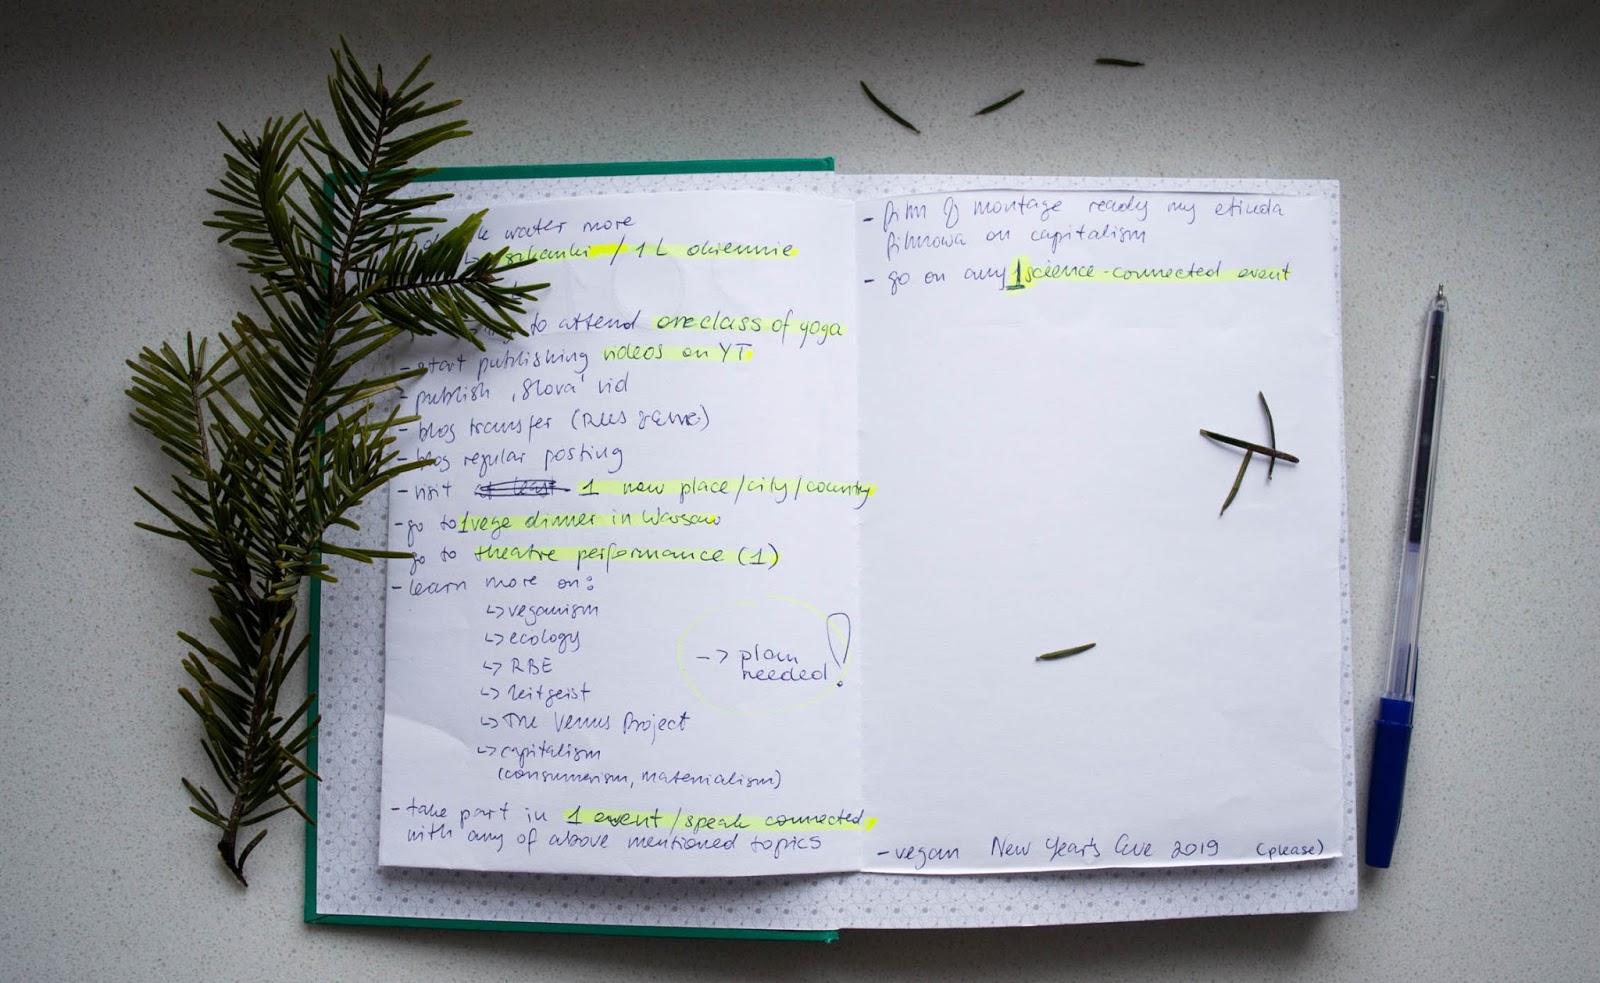 water more
szklanki / 1 L dziennie
to attend one class of yoga
- start publishing videos on YT
- publish 'Slova' vid
- blog transfer
- blog regular posting
- visit at least 1 new place/city/country
- go to 1 vege dinner in Warsaw
- go to theatre performance (1)
- learn more on:
↳ veganism
↳ ecology
↳ RBE
↳ zeitgeist
↳ The Venus Project
↳ capitalism
(consumerism, materialism)
-> plan
needed!
- take part in 1 event/speak connected
with any of above mentioned topics
- film & montage ready my etiuda
filmowa on capitalism
- go on any 1 science-connected event
- vegan New Year's Eve 2019 (please)